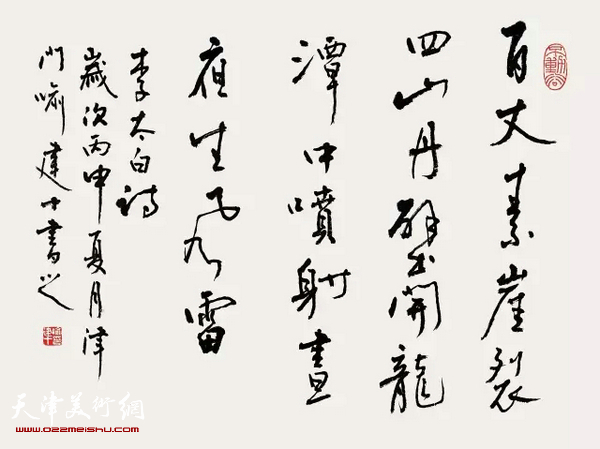 百丈素崖裂
四山丹壁開龍
潭中噴射晝
夜生風雷
李太白詩
歲次丙申夏月津
門喻建十書之
天津美術網
www.022meishu.com